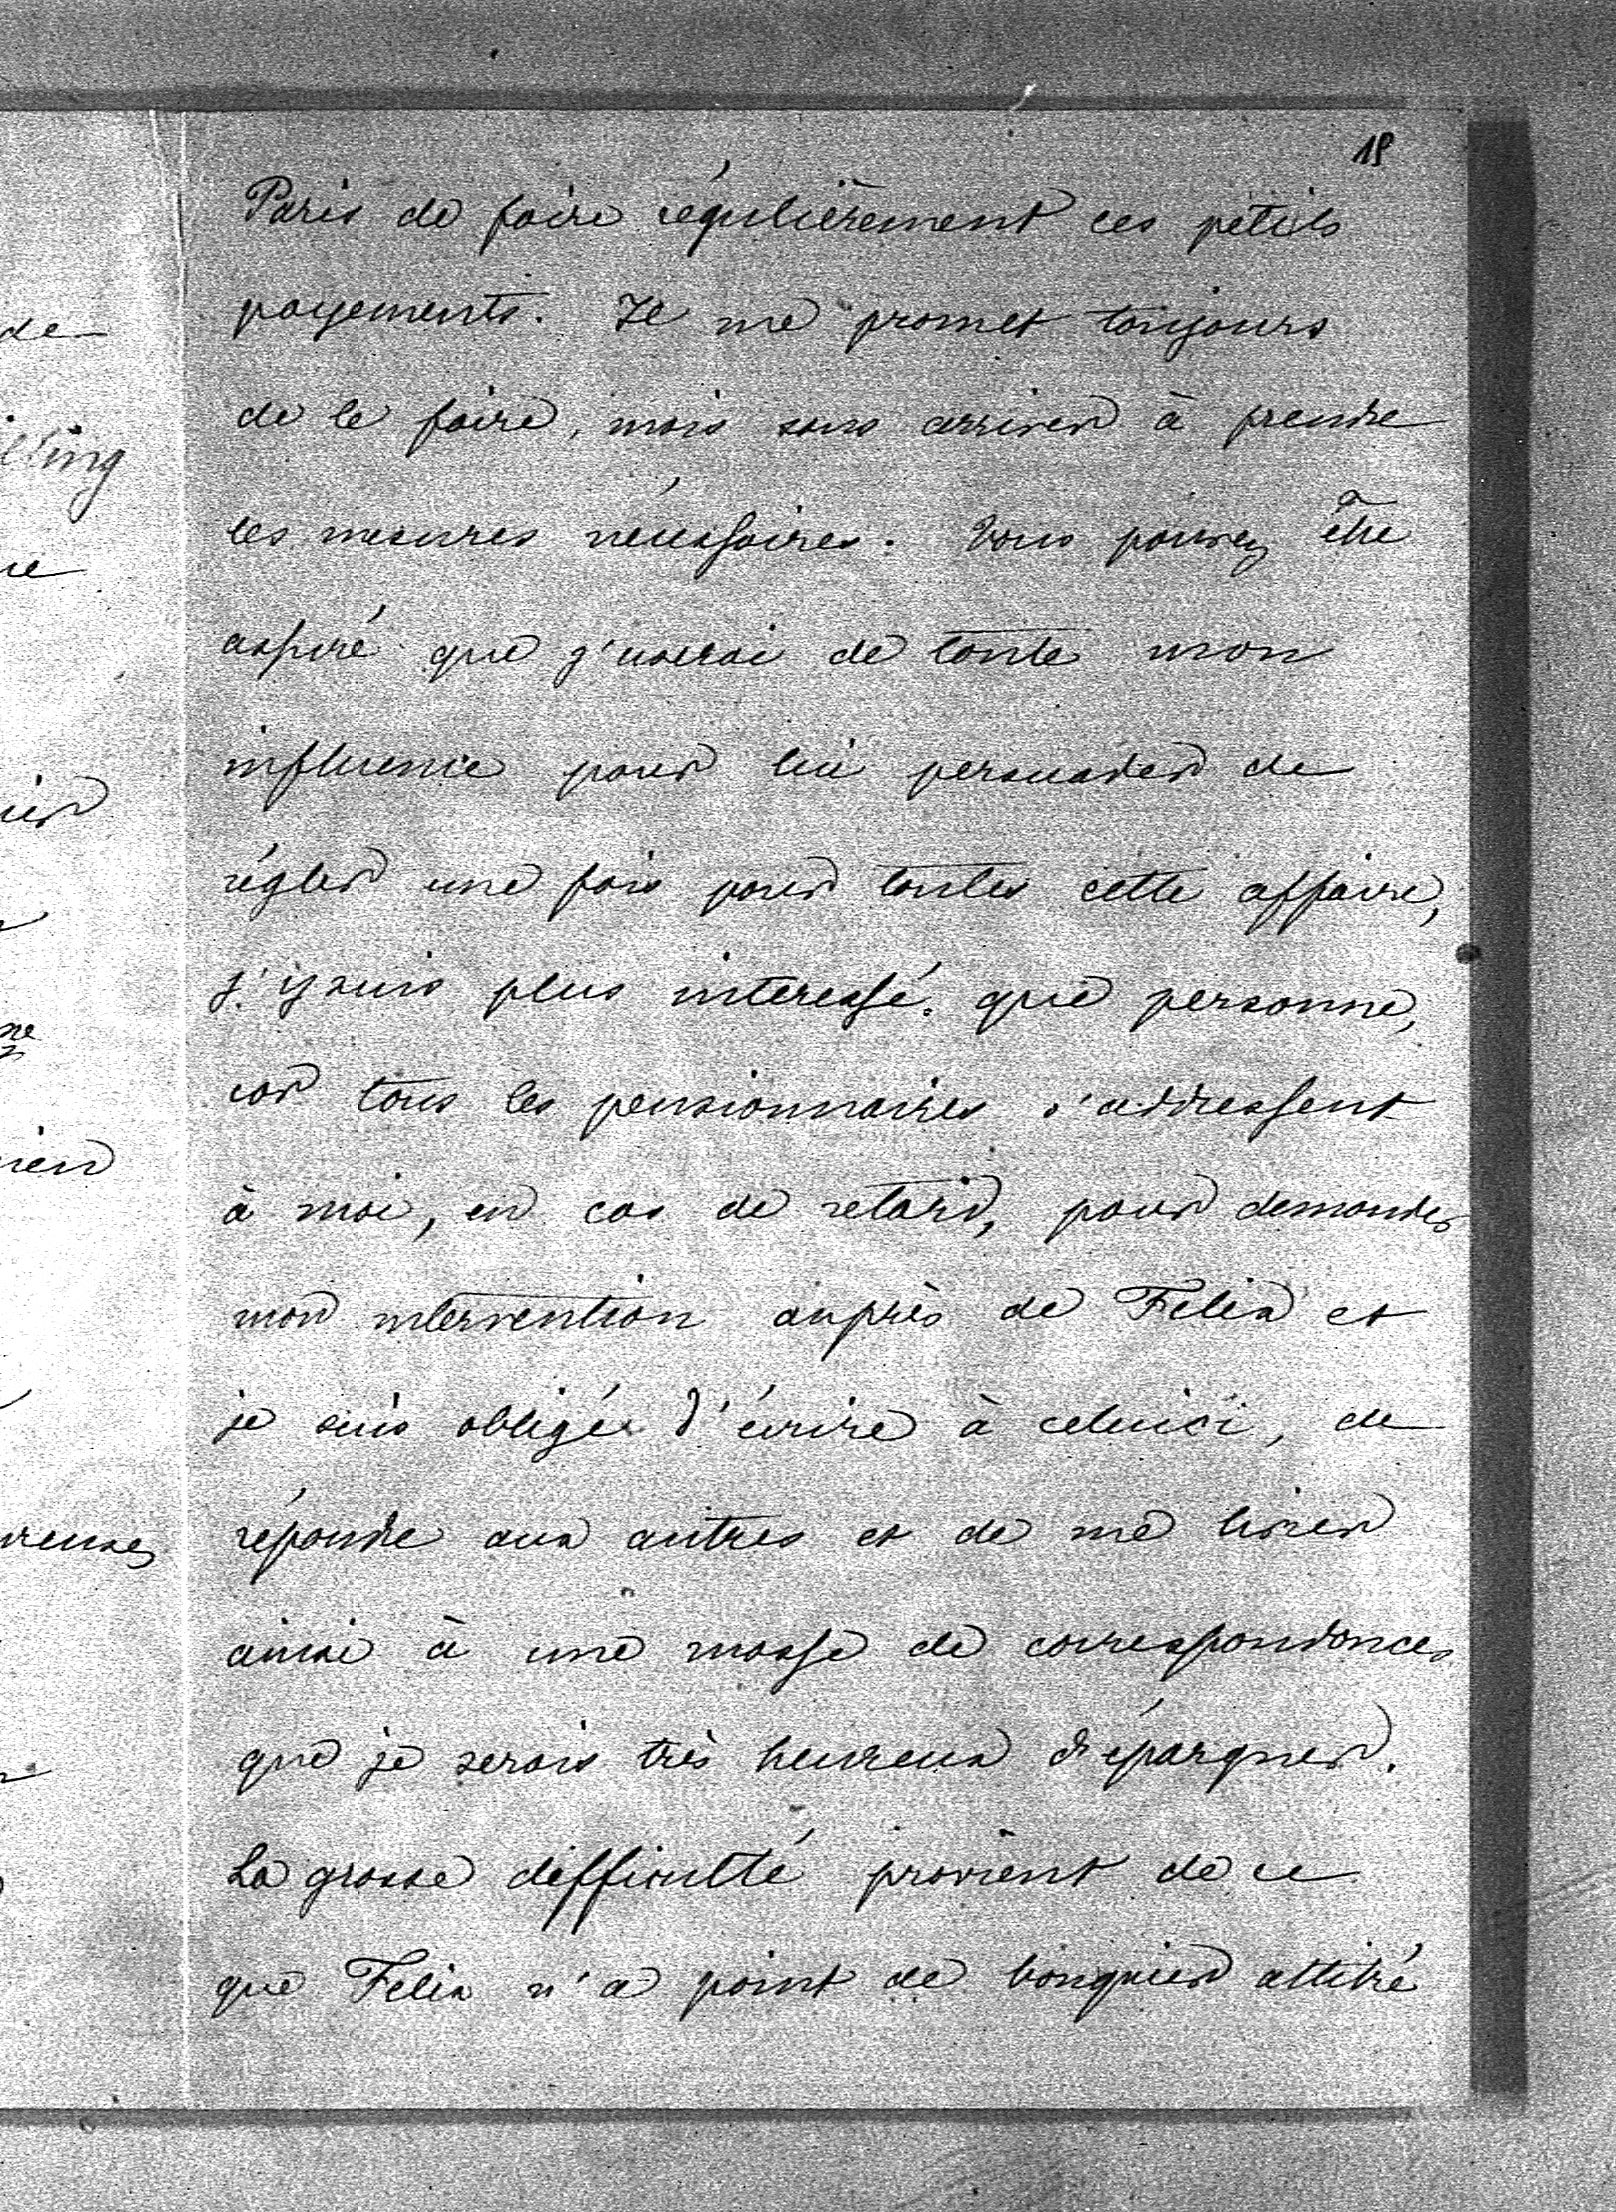 18
Paris de faire régulièrement ces petits
payements. Il me promet toujours
de le faire, mais sans arriver à prendre
les mesures nécessaires. Vous pouvez être
assuré que j'userai de toute mon
influence pour lui persuader de
régler une fois pour toutes cette affaire,
j'y suis plus interessé que personne,
car tous les pensionnaires s'addressent
à moi, en cas de retard, pour demander
mon intervention auprès de Felix et
je suis obligé d'écrire à celuici, de
répondre aux autres et de me livrer
ainsi à une masse de correspondances
que je serais très heureux d'épargner.
La grosse difficulté provient de ce
que Felix n'a point de banquier attitré